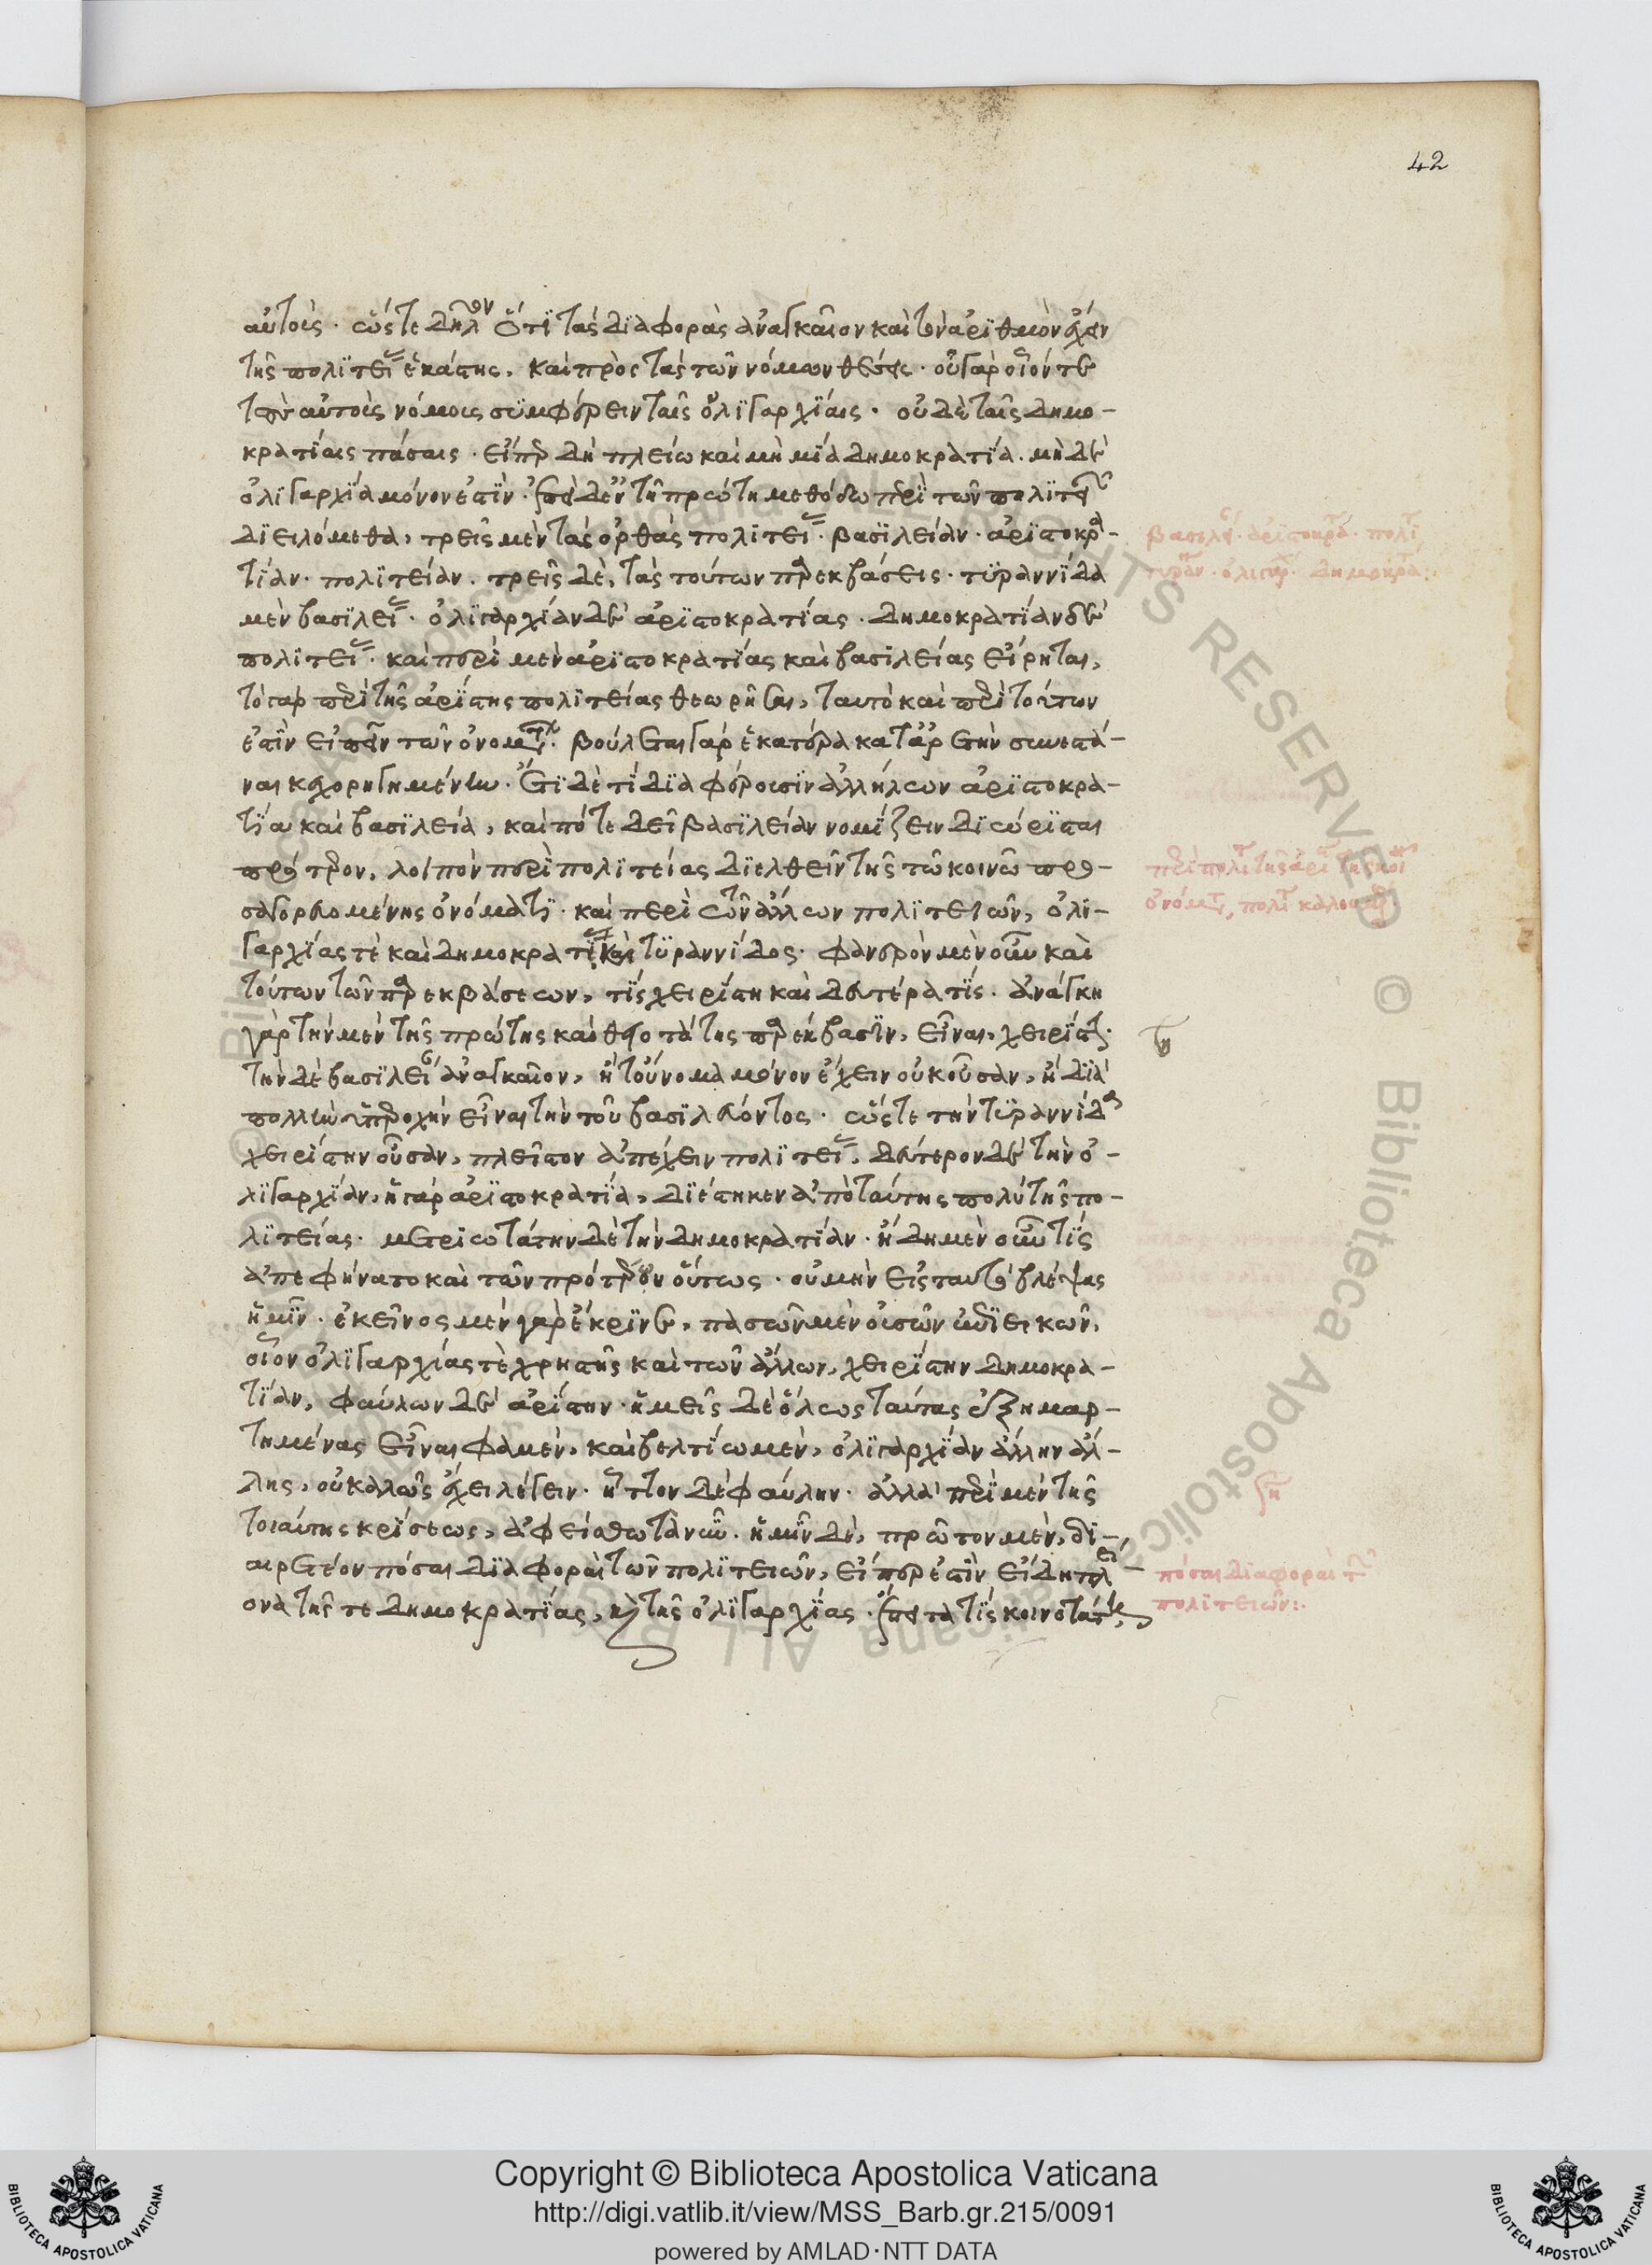 42
αὐτοῖς. ὥστε δῆλον ὅτι τὰς διαφορὰς ἀναγκαῖον καὶ τὸν ἀριθμὸν ἔχειν
τῆς πολιτείας ἑκάστης. καὶ πρὸς τὰς τῶν νόμων θέσεις. οὐ γὰρ οἷόν τε
τοὺς αὐτοὺς νόμους συμφέρειν ταῖς ὀλιγαρχίαις. οὐδὲ ταῖς δημο-
κρατίαις πάσαις. εἴπερ δὴ πλείω καὶ μὴ μία δημοκρατία. μὴ δὲ
ὀλιγαρχία μόνον ἐστὶν. ἐπεὶ δ' ἐν τῇ πρώτῃ μεθόδῳ περὶ τῶν πολιτειῶν
διειλόμεθα, τρεῖς μὲν τὰς ὀρθὰς πολιτείας. βασιλείαν. ἀριστοκρα-
τίαν. πολιτείαν. τρεῖς δὲ, τὰς τούτων παρεκβάσεις. τυραννίδα
μὲν βασιλείας. ὀλιγαρχίαν δὲ ἀριστοκρατίας. δημοκρατίαν δὲ
πολιτείας. καὶ περὶ μὲν ἀριστοκρατίας καὶ βασιλείας εἴρηται,
τὸ γὰρ περὶ τῆς ἀρίστης πολιτείας θεωρῆσαι, ταυτὸ καὶ περὶ τούτων
ἐστὶν εἰπεῖν τῶν ὀνομάτων. βούλεται γὰρ ἑκατέρα κατ' ἀρετὴν συνεστά-
ναι κεχορηγημένην. ἔτι δὲ τί διαφέρουσιν ἀλλήλων ἀριστοκρα-
τία καὶ βασιλεία, καὶ πότε δεῖ βασιλείαν νομίζειν διώρισται
πρότερον, λοιπὸν περὶ πολιτείας διελθεῖν τῆς τῷ κοινῷ προ-
σαγορευομένης ὀνόματι. καὶ περὶ τῶν ἄλλων πολιτειῶν, ὀλι-
γαρχίας τὲ καὶ δημοκρατίας καὶ τυραννίδος. φανερὸν μὲν οὖν καὶ
τούτων τῶν παρεκβάσεων, τίς χειρίστη καὶ δευτέρα τίς. ἀνάγκη
γὰρ τὴν μὲν τῆς πρώτης καὶ θειοτάτης παρέκβασιν, εἶναι, χειρίστην.
τὴν δὲ βασιλείαν ἀναγκαῖον, ἢ τοὔνομα μόνον ἔχειν οὐκ οὖσαν, ἢ διὰ
πολλὴν ὑπεροχὴν εἶναι τὴν τοῦ βασιλεύοντος. ὥστε τὴν τυραννίδα
χειρίστην οὖσαν, πλεῖστον ἀπέχειν πολιτείας, δεύτερον δὲ τὴν ὀ-
λιγαρχίαν, ἡ γὰρ ἀριστοκρατία, διέστηκεν ἀπὸ ταύτης πολὺ τῆς πο-
λιτείας. μετριωτάτην δὲ τὴν δημοκρατίαν. ἤδη μὲν οὖν τίς
ἀπεφήνατο καὶ τῶν πρότερον οὕτως. οὐ μὴν εἰς ταυτὸ βλέψας
ἡμῖν. ἐκεῖνος μὲν γὰρ ἔκρινε, πασῶν μὲν οὐσῶν ἐπιεικῶν,
οἷον ὀλιγαρχίας τὲ χρηστῆς καὶ τῶν ἄλλων, χειρίστην δημοκρα-
τίαν, φαύλων δὲ ἀρίστην. ἡμεῖς δὲ ὅλως ταύτας ἐξημαρ-
τημένας εἶναι φαμὲν, καὶ βελτίω μὲν, ὀλιγαρχίαν ἄλλην ἄλ-
λης, οὐ καλῶς ἔχει λέγειν. ἧττον δὲ φαύλην. ἀλλὰ περὶ μὲν τῆς
τοιαύτης κρίσεως, ἀφείσθω τὰ νῦν. ἡμῖν δὲ, πρῶτον μὲν, δι-
αιρετέον πόσαι διαφοραὶ τῶν πολιτειῶν, εἴπερ ἐστὶν εἴδη πλεί-
ονα τῆς τε δημοκρατίας, καὶ τῆς ὀλιγαρχίας. ἔπειτα τίς κοινοτάτη,
βασιλεί. ἀριστοκρα. πολι
τυραν. ὀλιγαρ. δημοκρα:
περὶ πολι τῆς ἀρι τῆς κοι
ὀνόματι, πολι καλου
ση
πόσαι διαφοραὶ τῶν
πολιτειῶν:
Copyright © Biblioteca Apostolica Vaticana
http://digi.vatlib.it/view/MSS_Barb.gr.215/0091
powered by AMLAD·NTT DATA
BIBLIOTECA APOSTOLICA VATICANA
BIBLIOTECA APOSTOLICA VATICANA